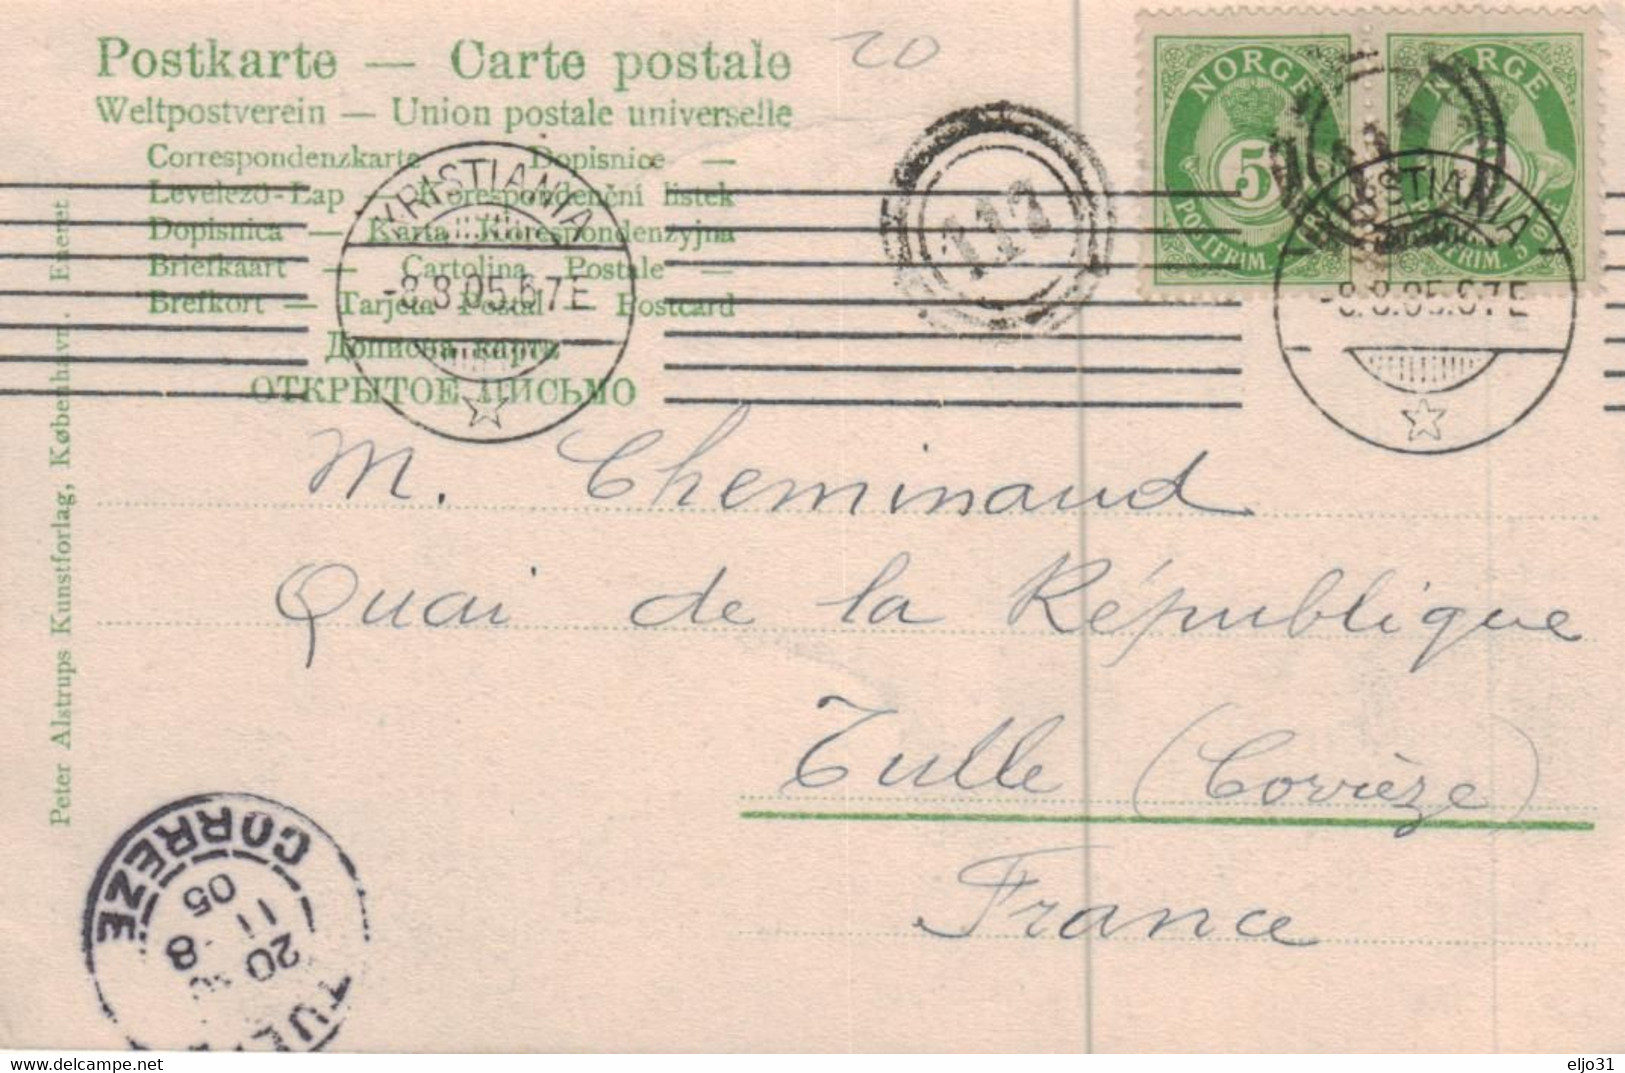 Postkarte — Carte postale
Weltpostverein — Union postale universelle
Correspondenzkarte — Dopisnice —
Levelező-Lap — Korespondenční listek
Dopisnica — Karta Korespondenzyjna
Briefkaart — Cartolina Postale —
Brefkort — Tarjeta Postal — Postcard
Дописова карта
ОТКРЫТОЕ ПИСЬМО
20
NORGE
5
POSTFRIM.
NORGE
POSTFRIM 5 ØRE
KRISTIANIA
-8.8.05.6-7E
117
KRISTIANIA
-8.8.05.6-7E
M. Cheminaud
Quai de la République
Tulle (Corrèze)
France
Peter Alstrups Kunstforlag, København. Eneret
TULLE
20
11 8
05
CORREZE
eljo31